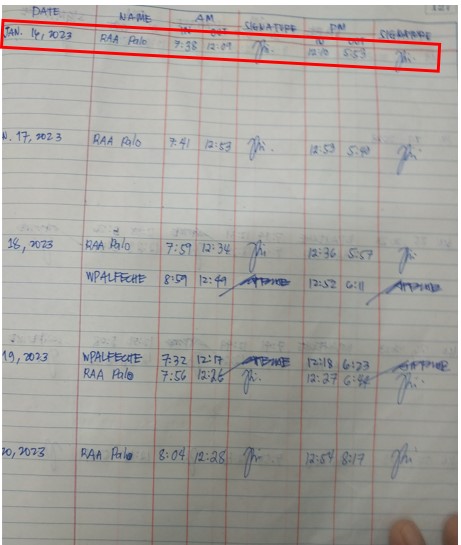 DATE NAME AM SIGNATURE PM SIGNATURE
IN OUT IN OUT
JAN. 16, 2023 RAA Palo 7:38 12:09 12:12 5:53
N. 17, 2023 RAA Palo 7:41 12:53 12:53 5:48
18, 2023 RAA Palo 7:59 12:34 12:36 5:57
WPALFECHE 8:59 12:49 12:52 6:11
19, 2023 WPALFECHE 7:32 12:17 12:18 6:23
RAA Palo 7:56 12:26 12:27 6:44
20, 2023 RAA Palo 8:04 12:28 12:54 8:17